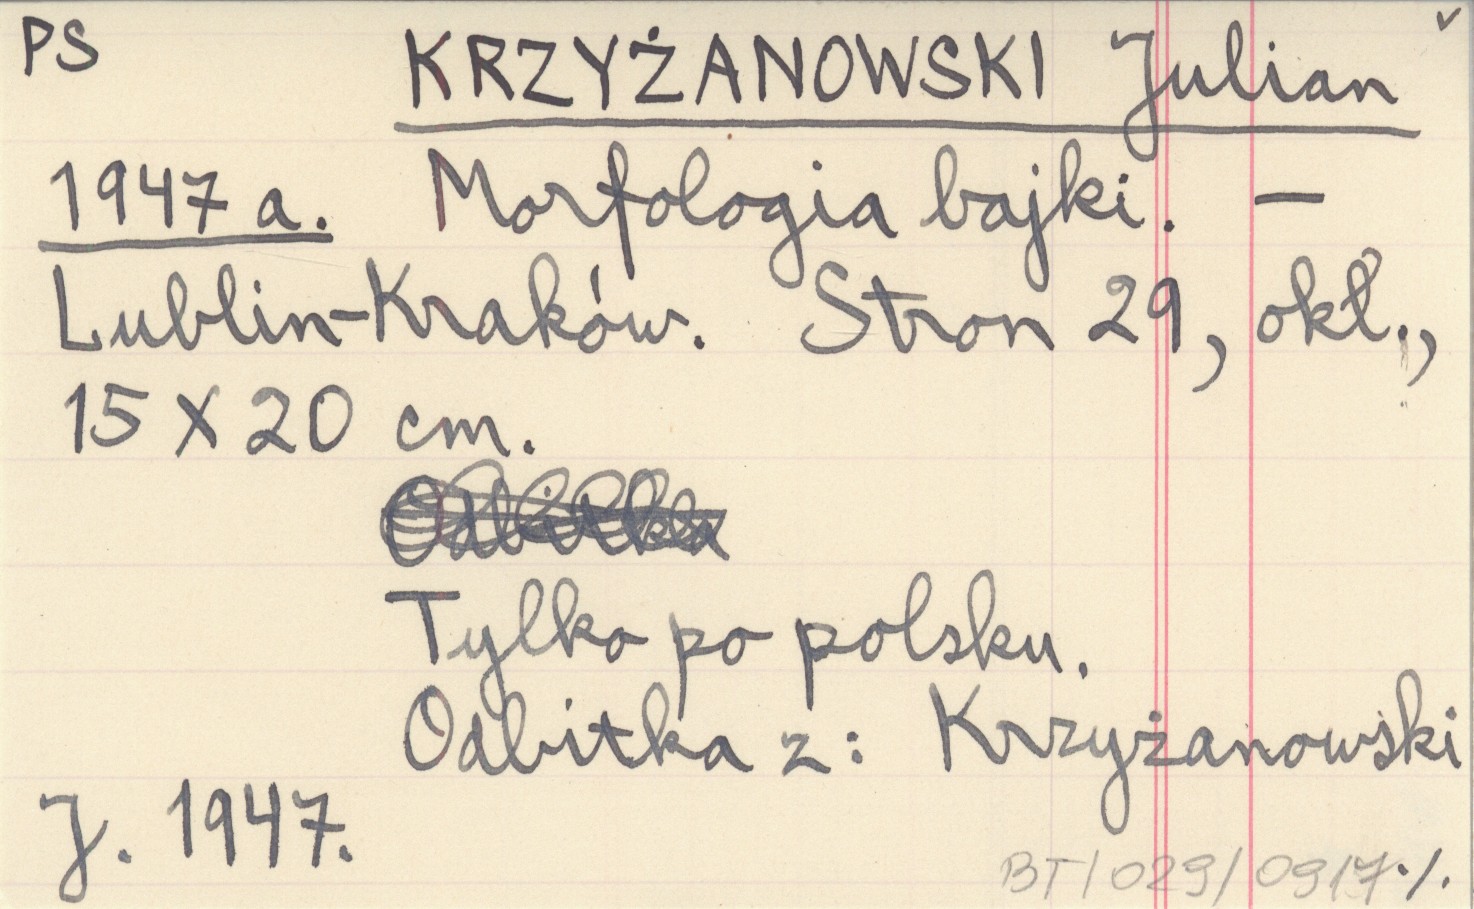 PS KRZYŻANOWSKI Julian
1947 a. Morfologia bajki. —
Lublin-Kraków. Stron 29, okł.,
15 X 20 cm.
Odbitka
Tylko po polsku.
Odbitka z: Krzyżanowski
J. 1947.
BT/029/0917./.